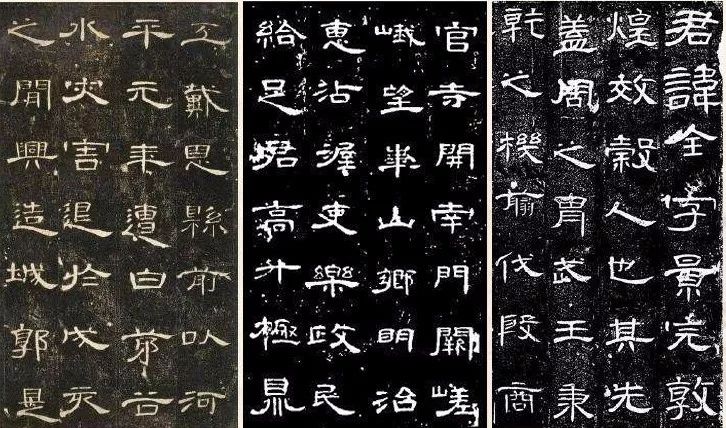 君諱全字景完敦
煌效穀人也其先
蓋周之胄武王秉
乾之機翦伐殷商
官寺開南門闕嵯
峨望華山鄉明治
惠沾渥吏樂政民
給足君高升極鼎
工戴恩縣前以河
平元年遭白茅谷
水災害退於戌亥
之間興造城郭是